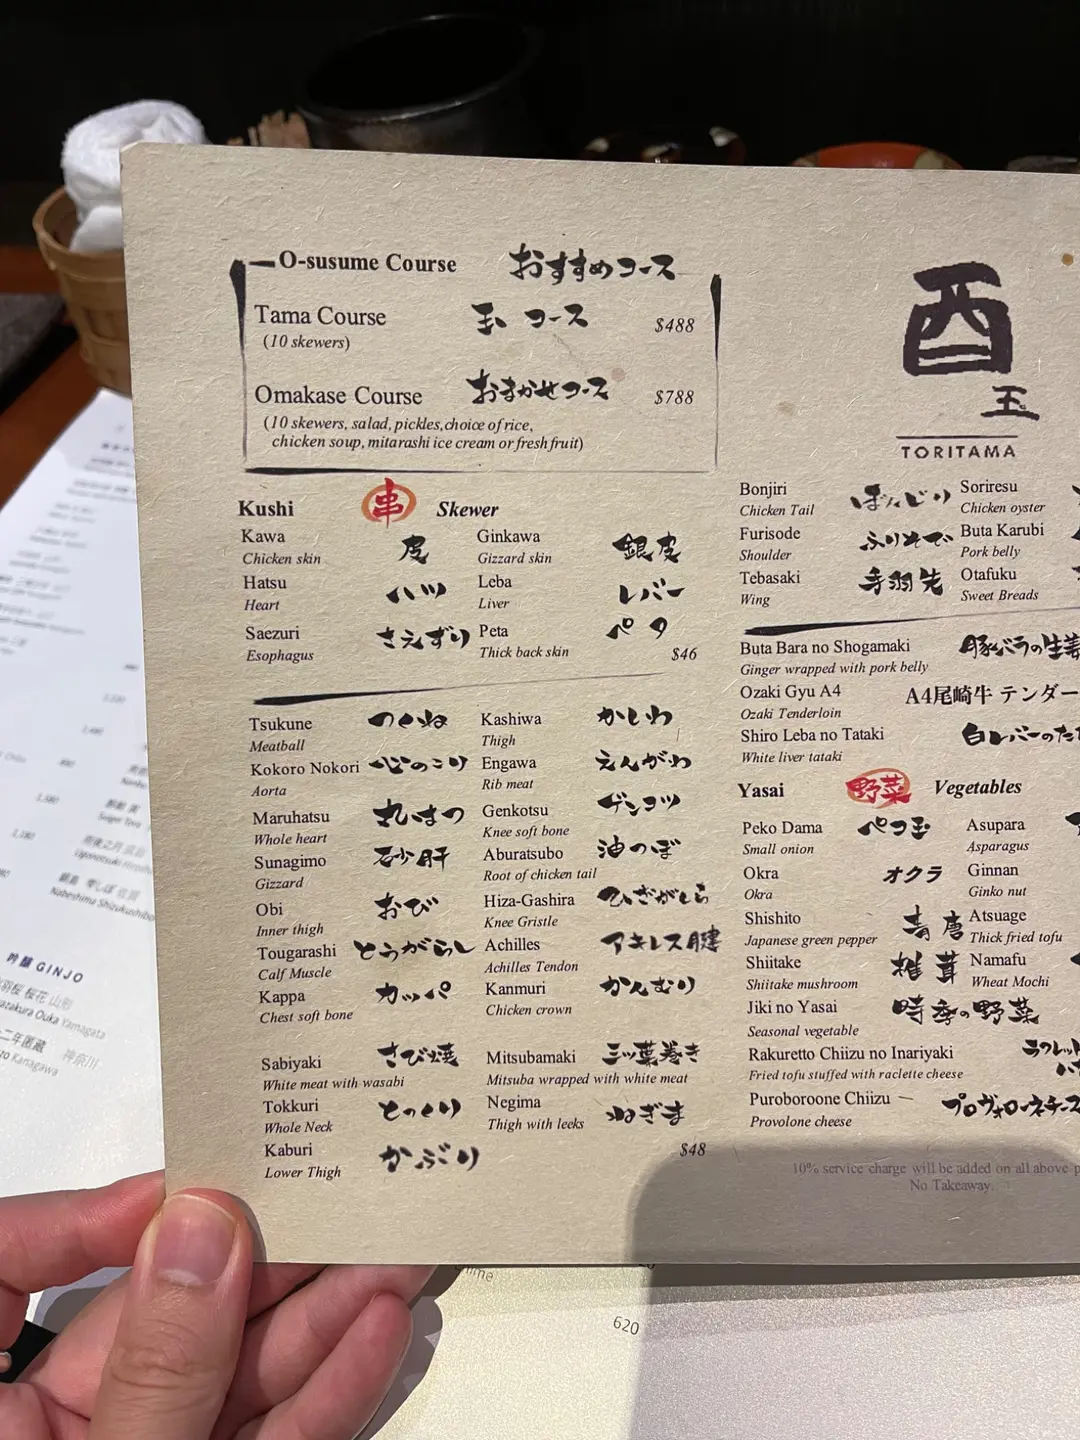 O-susume Course おすすめコース
Tama Course 玉 コース $488
(10 skewers)
Omakase Course おまかせコース $788
(10 skewers, salad, pickles,choice of rice,
chicken soup, mitarashi ice cream or fresh fruit)
酉
玉
TORITAMA
Kushi 串 Skewer
Kawa 皮 Ginkawa 銀皮
Chicken skin Gizzard skin
Hatsu ハツ Leba レバー
Heart Liver
Saezuri さえずり Peta ペタ
Esophagus Thick back skin $46
Tsukune つくね Kashiwa かしわ
Meatball Thigh
Kokoro Nokori 心のこり Engawa えんがわ
Aorta Rib meat
Maruhatsu 丸はつ Genkotsu ゲンコツ
Whole heart Knee soft bone
Sunagimo 砂肝 Aburatsubo 油つぼ
Gizzard Root of chicken tail
Obi おび Hiza-Gashira ひざがしら
Inner thigh Knee Gristle
Tougarashi とうがらし Achilles アキレス腱
Calf Muscle Achilles Tendon
Kappa カッパ Kanmuri かんむり
Chest soft bone Chicken crown
Sabiyaki さび焼 Mitsubamaki 三ッ葉巻き
White meat with wasabi Mitsuba wrapped with white meat
Tokkuri とっくり Negima ねぎま
Whole Neck Thigh with leeks
Kaburi かぶり $48
Lower Thigh
Bonjiri ぼんじり Soriresu
Chicken Tail Chicken oyster
Furisode ふりそで Buta Karubi
Shoulder Pork belly
Tebasaki 手羽先 Otafuku
Wing Sweet Breads
Buta Bara no Shogamaki 豚バラの生姜
Ginger wrapped with pork belly
Ozaki Gyu A4 A4尾崎牛 テンダー
Ozaki Tenderloin
Shiro Leba no Tataki 白レバーのた
White liver tataki
Yasai 野菜 Vegetables
Peko Dama ペコ玉 Asupara
Small onion Asparagus
Okra オクラ Ginnan
Okra Ginko nut
Shishito 青唐 Atsuage
Japanese green pepper Thick fried tofu
Shiitake 椎茸 Namafu
Shiitake mushroom Wheat Mochi
Jiki no Yasai 時季の野菜
Seasonal vegetable
Rakuretto Chiizu no Inariyaki ラクレット
Fried tofu stuffed with raclette cheese
Puroboroone Chiizu プロヴォローネチーズ
Provolone cheese
10% service charge will be added on all above p
No Takeaway.
吟醸 GINJO
620